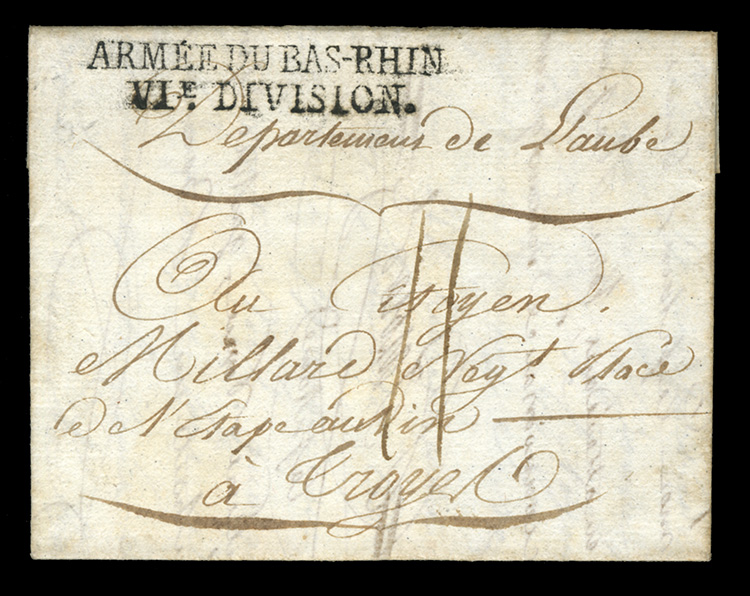 ARMÉE DU BAS-RHIN
VIE. DIVISION.
Departement de Laube
Au Citoyen.
Millard Negt. Place
de l'Etape au Vin
à Troyes
11